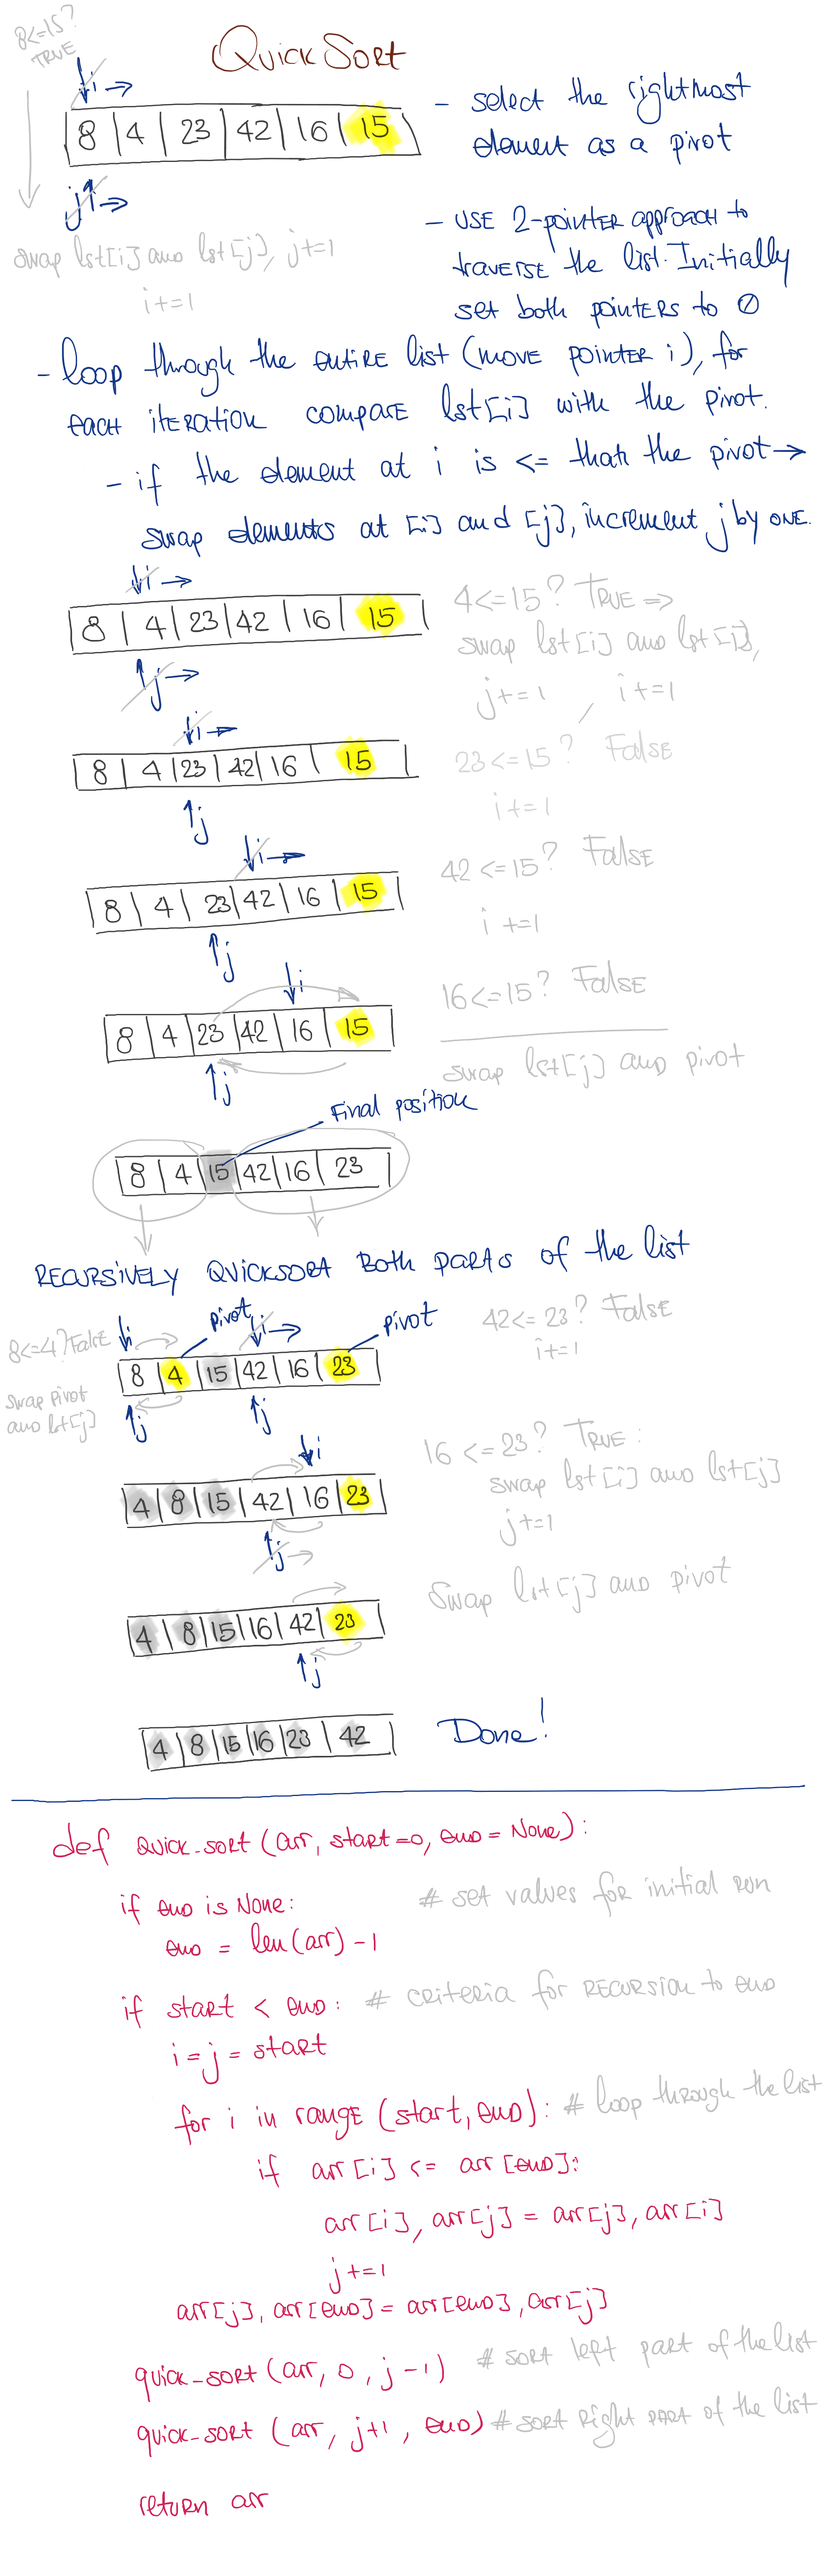 QuickSort
8<=15?
TRUE
i →
8 4 23 42 16 15
j →
swap lst[i] and lst[j], j+=1
i+=1
- select the rightmost
element as a pivot
- USE 2-pointer approach to
traverse the list. Initially
set both pointers to 0
- loop through the entire list (move pointer i), for
each iteration compare lst[i] with the pivot.
- if the element at i is <= than the pivot →
swap elements at [i] and [j], increment j by one.
i →
8 4 23 42 16 15
j →
4<=15? TRUE =>
swap lst[i] and lst[j],
j+=1 , i+=1
i →
8 4 23 42 16 15
j
23<=15? False
i+=1
i →
8 4 23 42 16 15
j
42<=15? False
i+=1
i
8 4 23 42 16 15
j
16<=15? False
swap lst[j] and pivot
Final position
8 4 15 42 16 23
RECURSIVELY QUICKSORT Both parts of the list
8<=4? False
i
pivot
i →
pivot
8 4 15 42 16 23
j
j
swap pivot
and lst[j]
42<=23? False
i+=1
i
4 8 15 42 16 23
j →
16<=23? TRUE:
swap lst[i] and lst[j]
j+=1
4 8 15 16 42 23
j
Swap lst[j] and pivot
4 8 15 16 23 42
Done!
def quick_sort(arr, start=0, end=None):
if end is None: # set values for initial run
end = len(arr)-1
if start < end: # criteria for recursion to end
i=j=start
for i in range(start, end): # loop through the list
if arr[i] <= arr[end]:
arr[i], arr[j] = arr[j], arr[i]
j+=1
arr[j], arr[end] = arr[end], arr[j]
quick_sort(arr, 0, j-1) # sort left part of the list
quick_sort(arr, j+1, end) # sort right part of the list
return arr